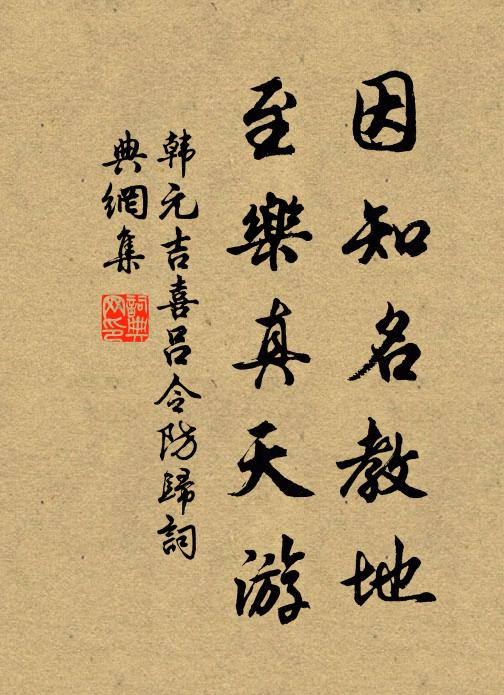 因知名教地
至樂真天游
韩元吉喜吕令防歸詞
典網集
詞典
网印